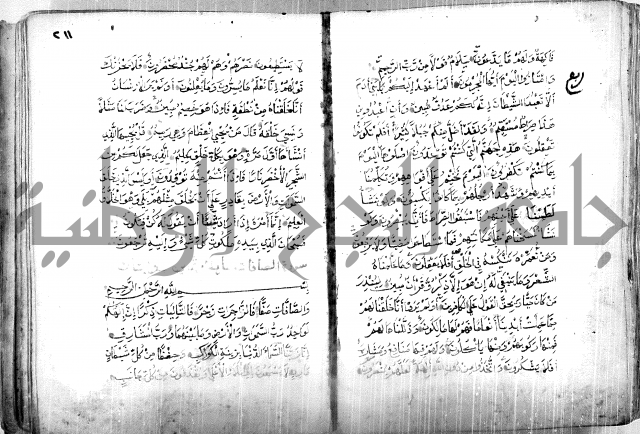 فاكهة ولهم ما يدعون سلام قولا من رب الرحيم
وامتازوا اليوم ايها المجرمون الم اعهد اليكم يا بني ادم
ان لا تعبدوا الشيطان انه لكم عدو مبين وان اعبدوني
هذا صراط مستقيم ولقد اضل منكم جبلا كثيرا افلم تكونوا
تعقلون هذه جهنم التي كنتم توعدون اصلوها اليوم
بما كنتم تكفرون اليوم نختم على افواههم وتكلمنا
ايديهم وتشهد ارجلهم بما كانوا يكسبون ولو نشاء
لطمسنا على اعينهم فاستبقوا الصراط فانى يبصرون ولو
نشاء لمسخناهم على مكانتهم فما استطاعوا مضيا ولا يرجعون
ومن نعمره ننكسه في الخلق افلا يعقلون وما علمناه
الشعر وما ينبغي له ان هو الا ذكر وقران مبين لينذر
من كان حيا ويحق القول على الكافرين اولم يروا انا خلقنا لهم
مما عملت ايدينا انعاما فهم لها مالكون وذللناها لهم
فمنها ركوبهم ومنها ياكلون ولهم فيها منافع ومشارب
افلا يشكرون واتخذوا من دون الله الهة لعلهم ينصرون
ربع
٢١١
لا يستطيعون نصرهم وهم لهم جند محضرون فلا يحزنك
قولهم انا نعلم ما يسرون وما يعلنون اولم ير الانسان
انا خلقناه من نطفة فاذا هو خصيم مبين وضرب لنا مثلا
ونسي خلقه قال من يحيي العظام وهي رميم قل يحييها الذي
انشاها اول مرة وهو بكل خلق عليم الذي جعل لكم من
الشجر الاخضر نارا فاذا انتم منه توقدون اوليس الذي خلق
السموات والارض بقادر على ان يخلق مثلهم بلى وهو الخلاق
العليم انما امره اذا اراد شيئا ان يقول له كن فيكون
فسبحان الذي بيده ملكوت كل شيء واليه ترجعون
سورة الصافات
بسم الله الرحمن الرحيم
والصافات صفا فالزاجرات زجرا فالتاليات ذكرا ان الهكم
لواحد رب السموات والارض وما بينهما ورب المشارق
انا زينا السماء الدنيا بزينة الكواكب وحفظا من كل شيطان
مارد لا يسمعون الى الملا الاعلى ويقذفون من كل جانب
جامعة النجاح الوطنية